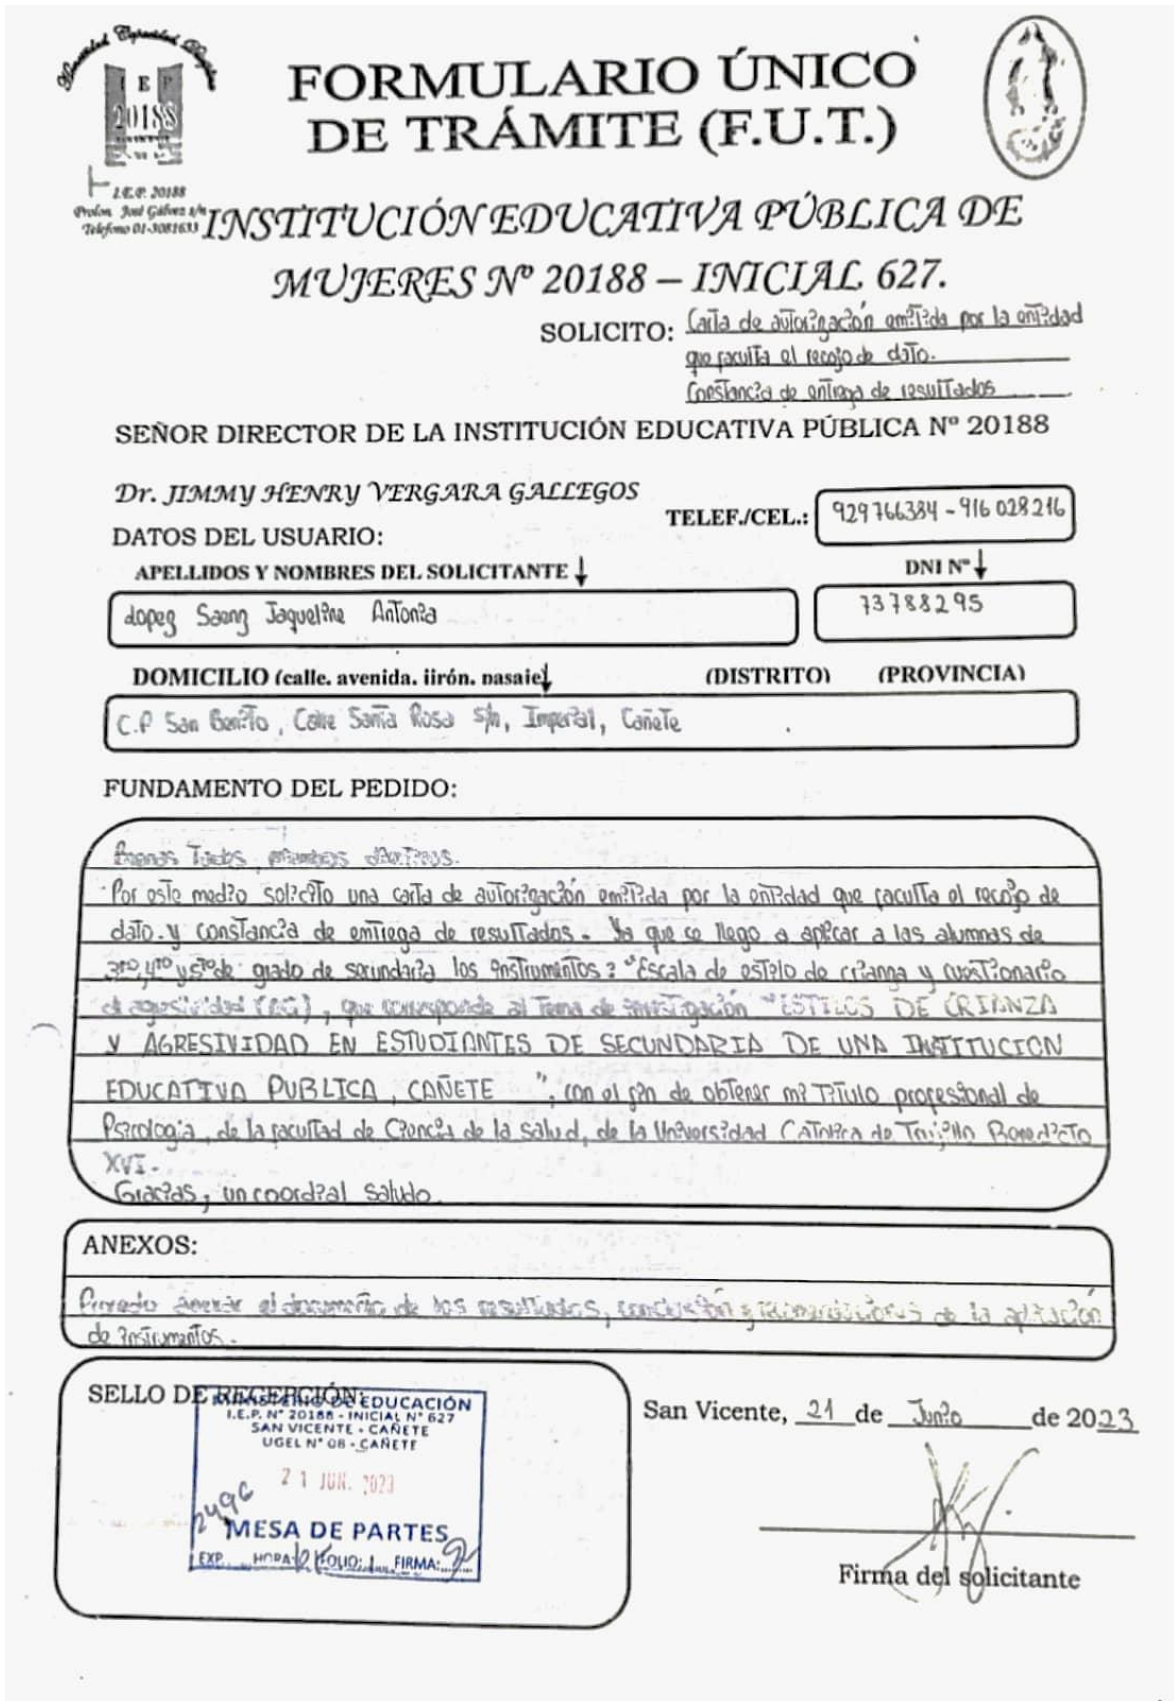 Humanidad Capacidad Disciplina
I E P
20188
I.E.P. 20188
Prolon. José Gálvez s/n
Telefono 01-3081633
FORMULARIO ÚNICO
DE TRÁMITE (F.U.T.)
INSTITUCIÓN EDUCATIVA PÚBLICA DE
MUJERES Nº 20188 – INICIAL 627.
SOLICITO: Carta de autorización emitida por la entidad
que faculta el recojo de dato.
Constancia de entrega de resultados
SEÑOR DIRECTOR DE LA INSTITUCIÓN EDUCATIVA PÚBLICA Nº 20188
Dr. JIMMY HENRY VERGARA GALLEGOS
TELEF./CEL.: 929766384 - 916 028216
DATOS DEL USUARIO:
APELLIDOS Y NOMBRES DEL SOLICITANTE ↓ DNI Nº ↓
Lopez Saenz Jaqueline Antonia 73788295
DOMICILIO (calle. avenida. jirón. pasaje↓ (DISTRITO) (PROVINCIA)
C.P San Benito, Calle Santa Rosa s/n, Imperial, Cañete
FUNDAMENTO DEL PEDIDO:
Buenas Tardes, miembros directivos.
Por este medio solicito una carta de autorización emitida por la entidad que faculta el recojo de
dato. y constancia de entrega de resultados. Ya que se llego a aplicar a las alumnas de
3ro, 4to y 5to de grado de secundaria los instrumentos: "Escala de estilo de crianza y cuestionario
de agresividad (AG), que corresponde al Tema de investigación "ESTILOS DE CRIANZA
Y AGRESIVIDAD EN ESTUDIANTES DE SECUNDARIA DE UNA INSTITUCION
EDUCATIVA PUBLICA, CAÑETE ", con el fin de obtener mi Título profesional de
Psicologia, de la facultad de Ciencia de la salud, de la Universidad Católica de Trujillo Benedicto
XVI.
Gracias, un coordial saludo.
ANEXOS:
Procedo anexar el documento de los resultados, conclusión y recomendaciones de la aplicación
de instrumentos.
SELLO DE RECEPCIÓN:
MINISTERIO DE EDUCACIÓN
I.E.P. N° 20188 - INICIAL N° 627
SAN VICENTE - CAÑETE
UGEL N° 08 - CAÑETE
21 JUN. 2023
2496
MESA DE PARTES
EXP. HORA: FOLIO: 1 FIRMA:
San Vicente, 21 de Junio de 2023
Firma del solicitante